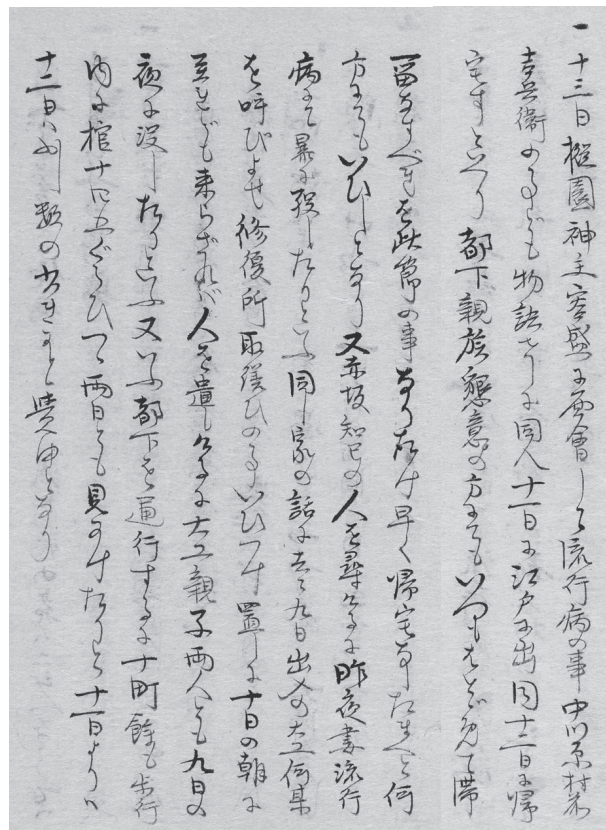 一 十三日 梃園 神主 宮盛に面会して流行病の事 中川原村名
吉兵衛の事ども物語せしに同人十一日に江戸に出 同十二日に帰
宅すといへり 都下親族懇意の方にてもいつもはとゞめて滞
留なすべきを此節の事なれは早く帰宅なすべしと何
方にてもいひしとなり 又赤坂知己の人を尋けるに昨夜妻流行
病にて暴に殁したりといふ 同し家の話に去る九日出入の大工何某
を呼びよせ修復所取繕ひの事いひつけ置しに十日の朝に
至れども来らざれば人を遣しけるに大工親子両人とも九日の
夜に没したりといふ 又いふ都下を通行するに十町餘も歩行
内に棺十四五ぐらひつゝ両日とも見かけたりと 十一日よりハ
十二日ハ別て数の少きさまに覚ゆとなり